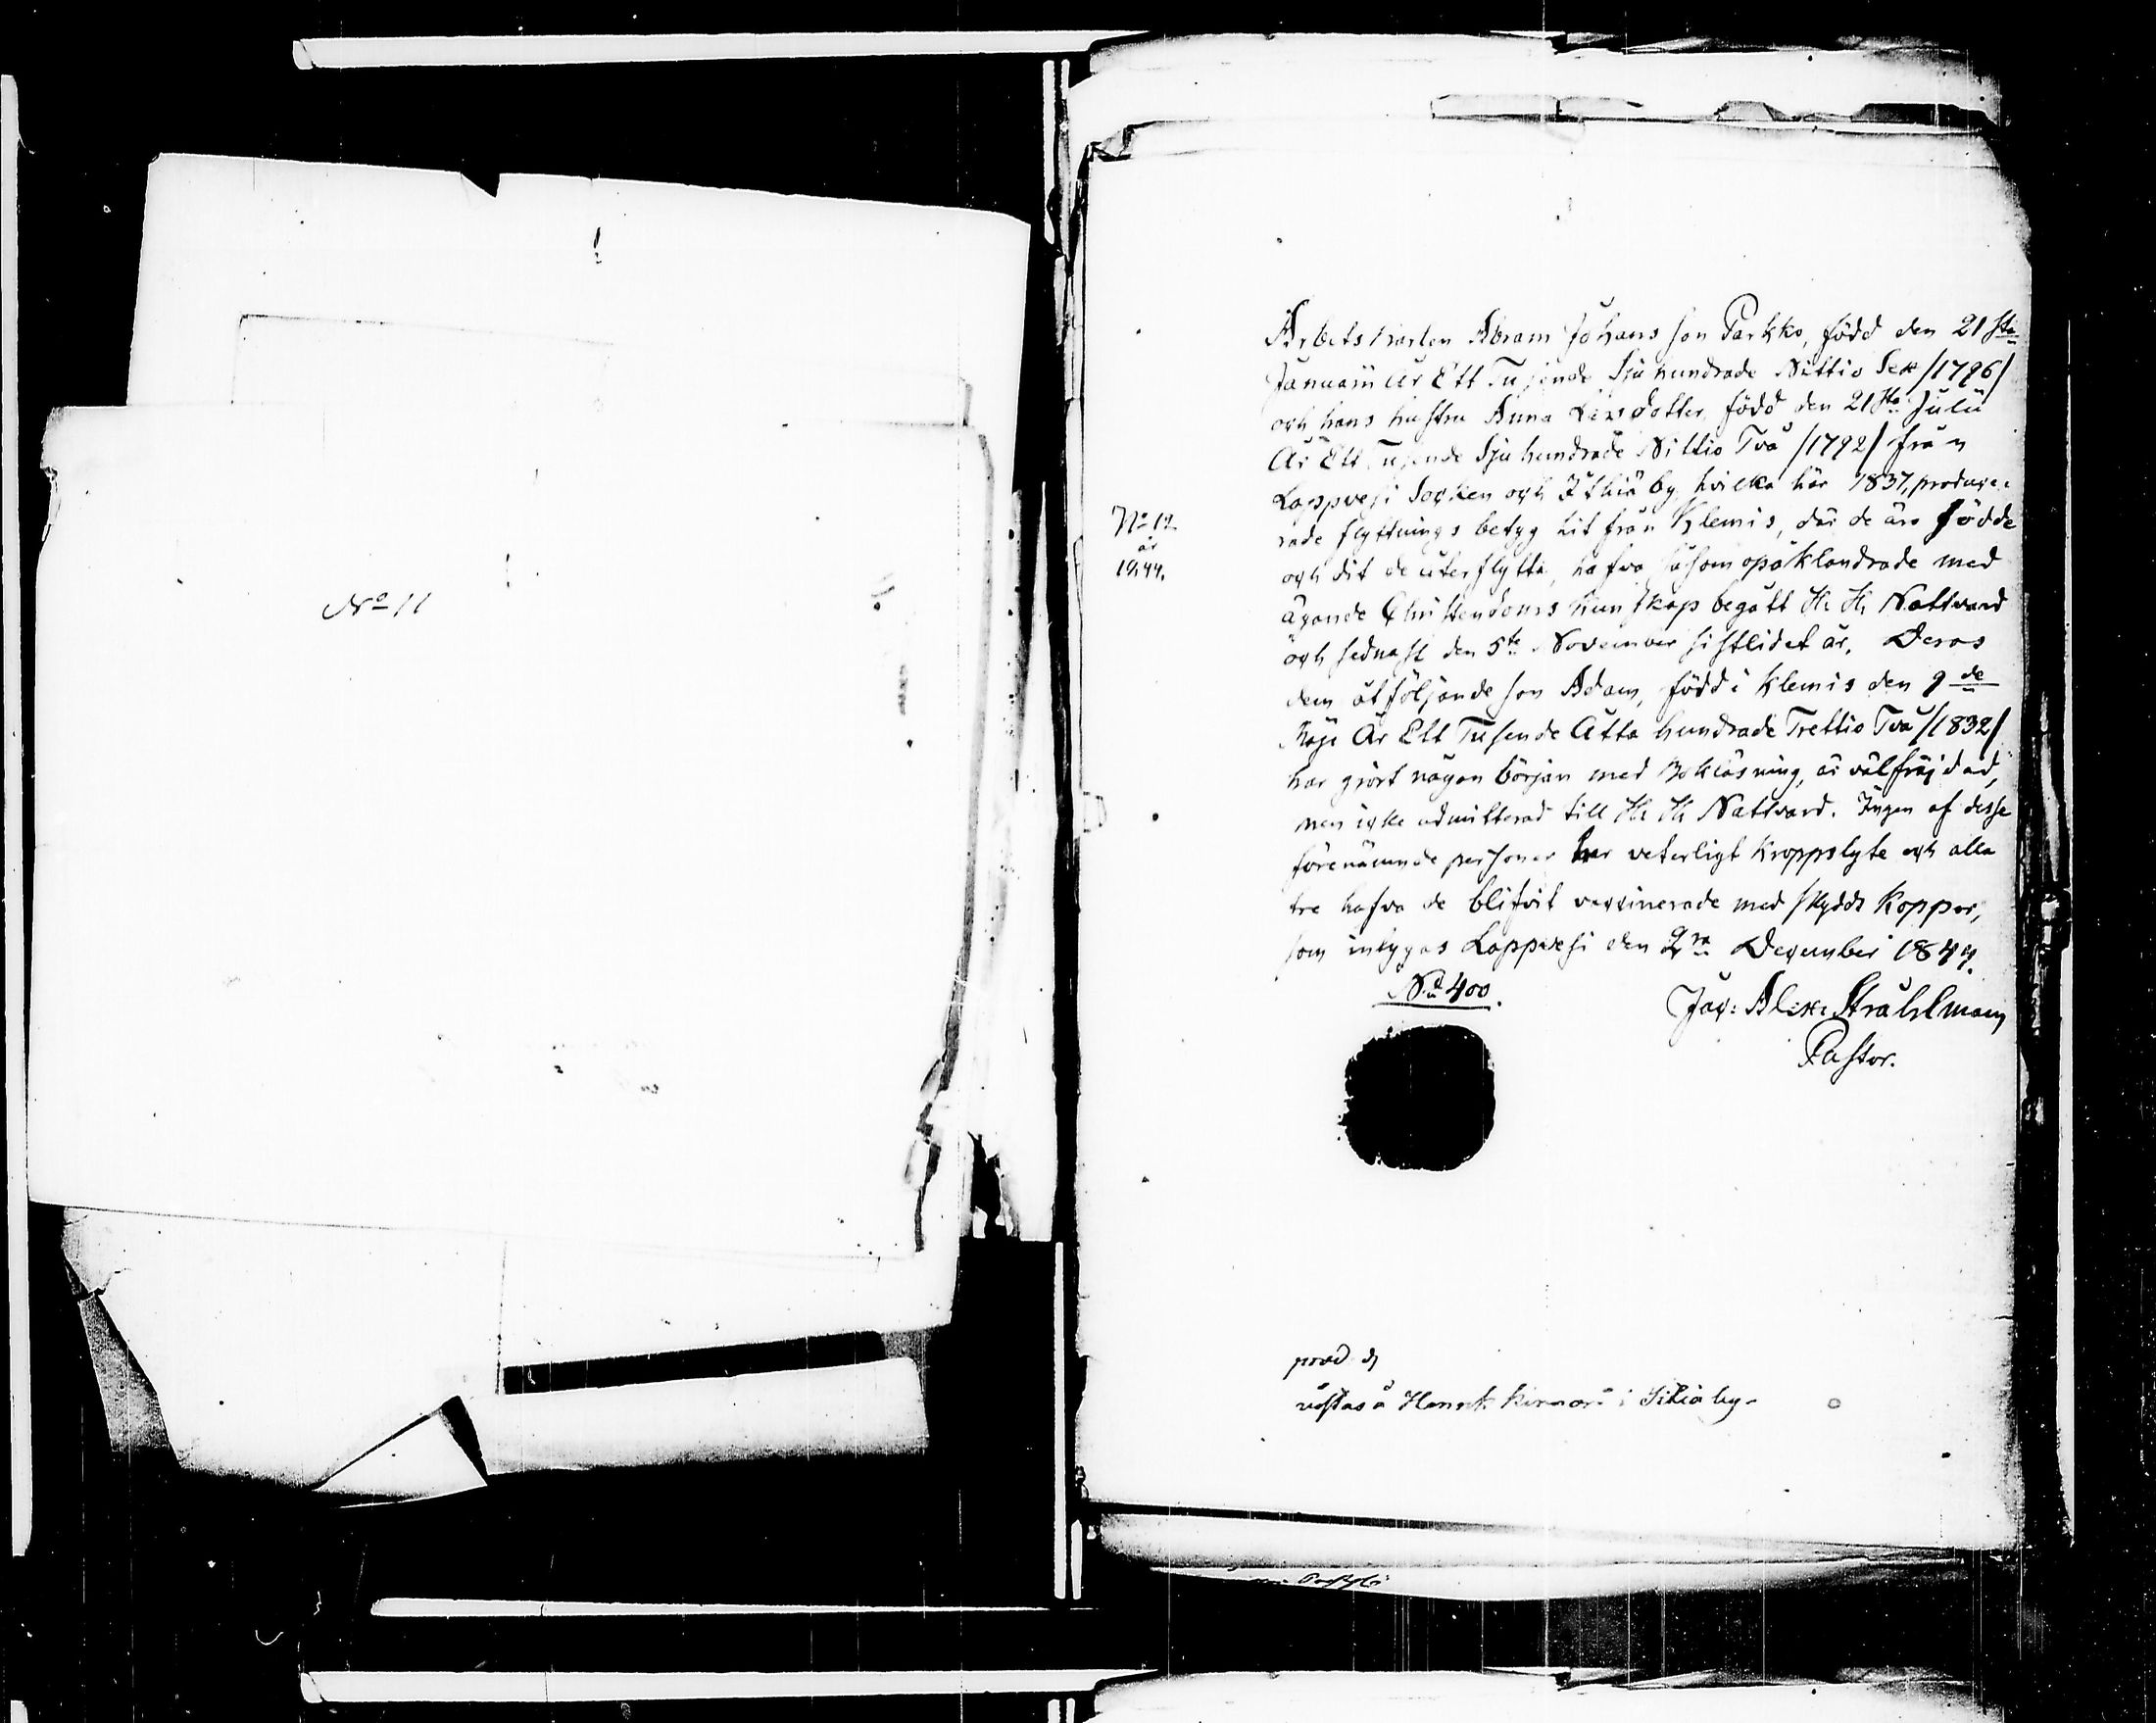 No 11
No 12
år
1844.
Arbetskarlen Abram Johansson Parkko, född den 21sta
Januarii År Ett Tusende Sju hundrade Nittio Sex /1796/
och hans hustru Anna Larsdotter, född den 21sta Julii
År Ett Tusende Sju hundrade Nittio Två /1792/ från
Lappvesi Socken och Ithiä by, hvilka här 1837, produce-
rade flyttnings betyg hit från Klemis, där de äro födde
och dit de återflytta, hafva såsom opåklandrade med
ägande Christendoms kunskap begått H. H. Nattvard
och sednast den 5te November sistlidet år. Deras
dem åtföljande son Adam, född i Klemis den 9de
Maji År Ett Tusende Åtta hundrade Trettio Två /1832/
har gjört någon början med Bokläsning, är välfräjdad,
men icke admitterad till H. H. Nattvard. Ingen af desse
förenämnde personer har veterligt kroppslyte och alla
tre hafva de blifvit vaccinerade med skydds koppor,
som intygas Lappvesi den 2ra December 1844.
No 400.
Jac: Alex: Stråhlman
Pastor.
prod d
vistas å Henrik i by